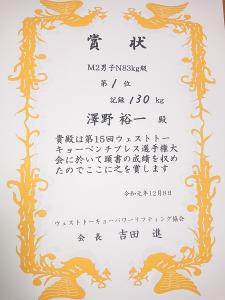 賞状
M2男子N83kg級
第1位
記録 130 kg
澤野 裕一 殿
貴殿は第15回ウェストトー
キョーベンチプレス選手権大
会に於いて頭書の成績を収め
たのでここに之を賞します
令和元年12月8日
ウェストトーキョーパワーリフティング協会
会長 吉田 進